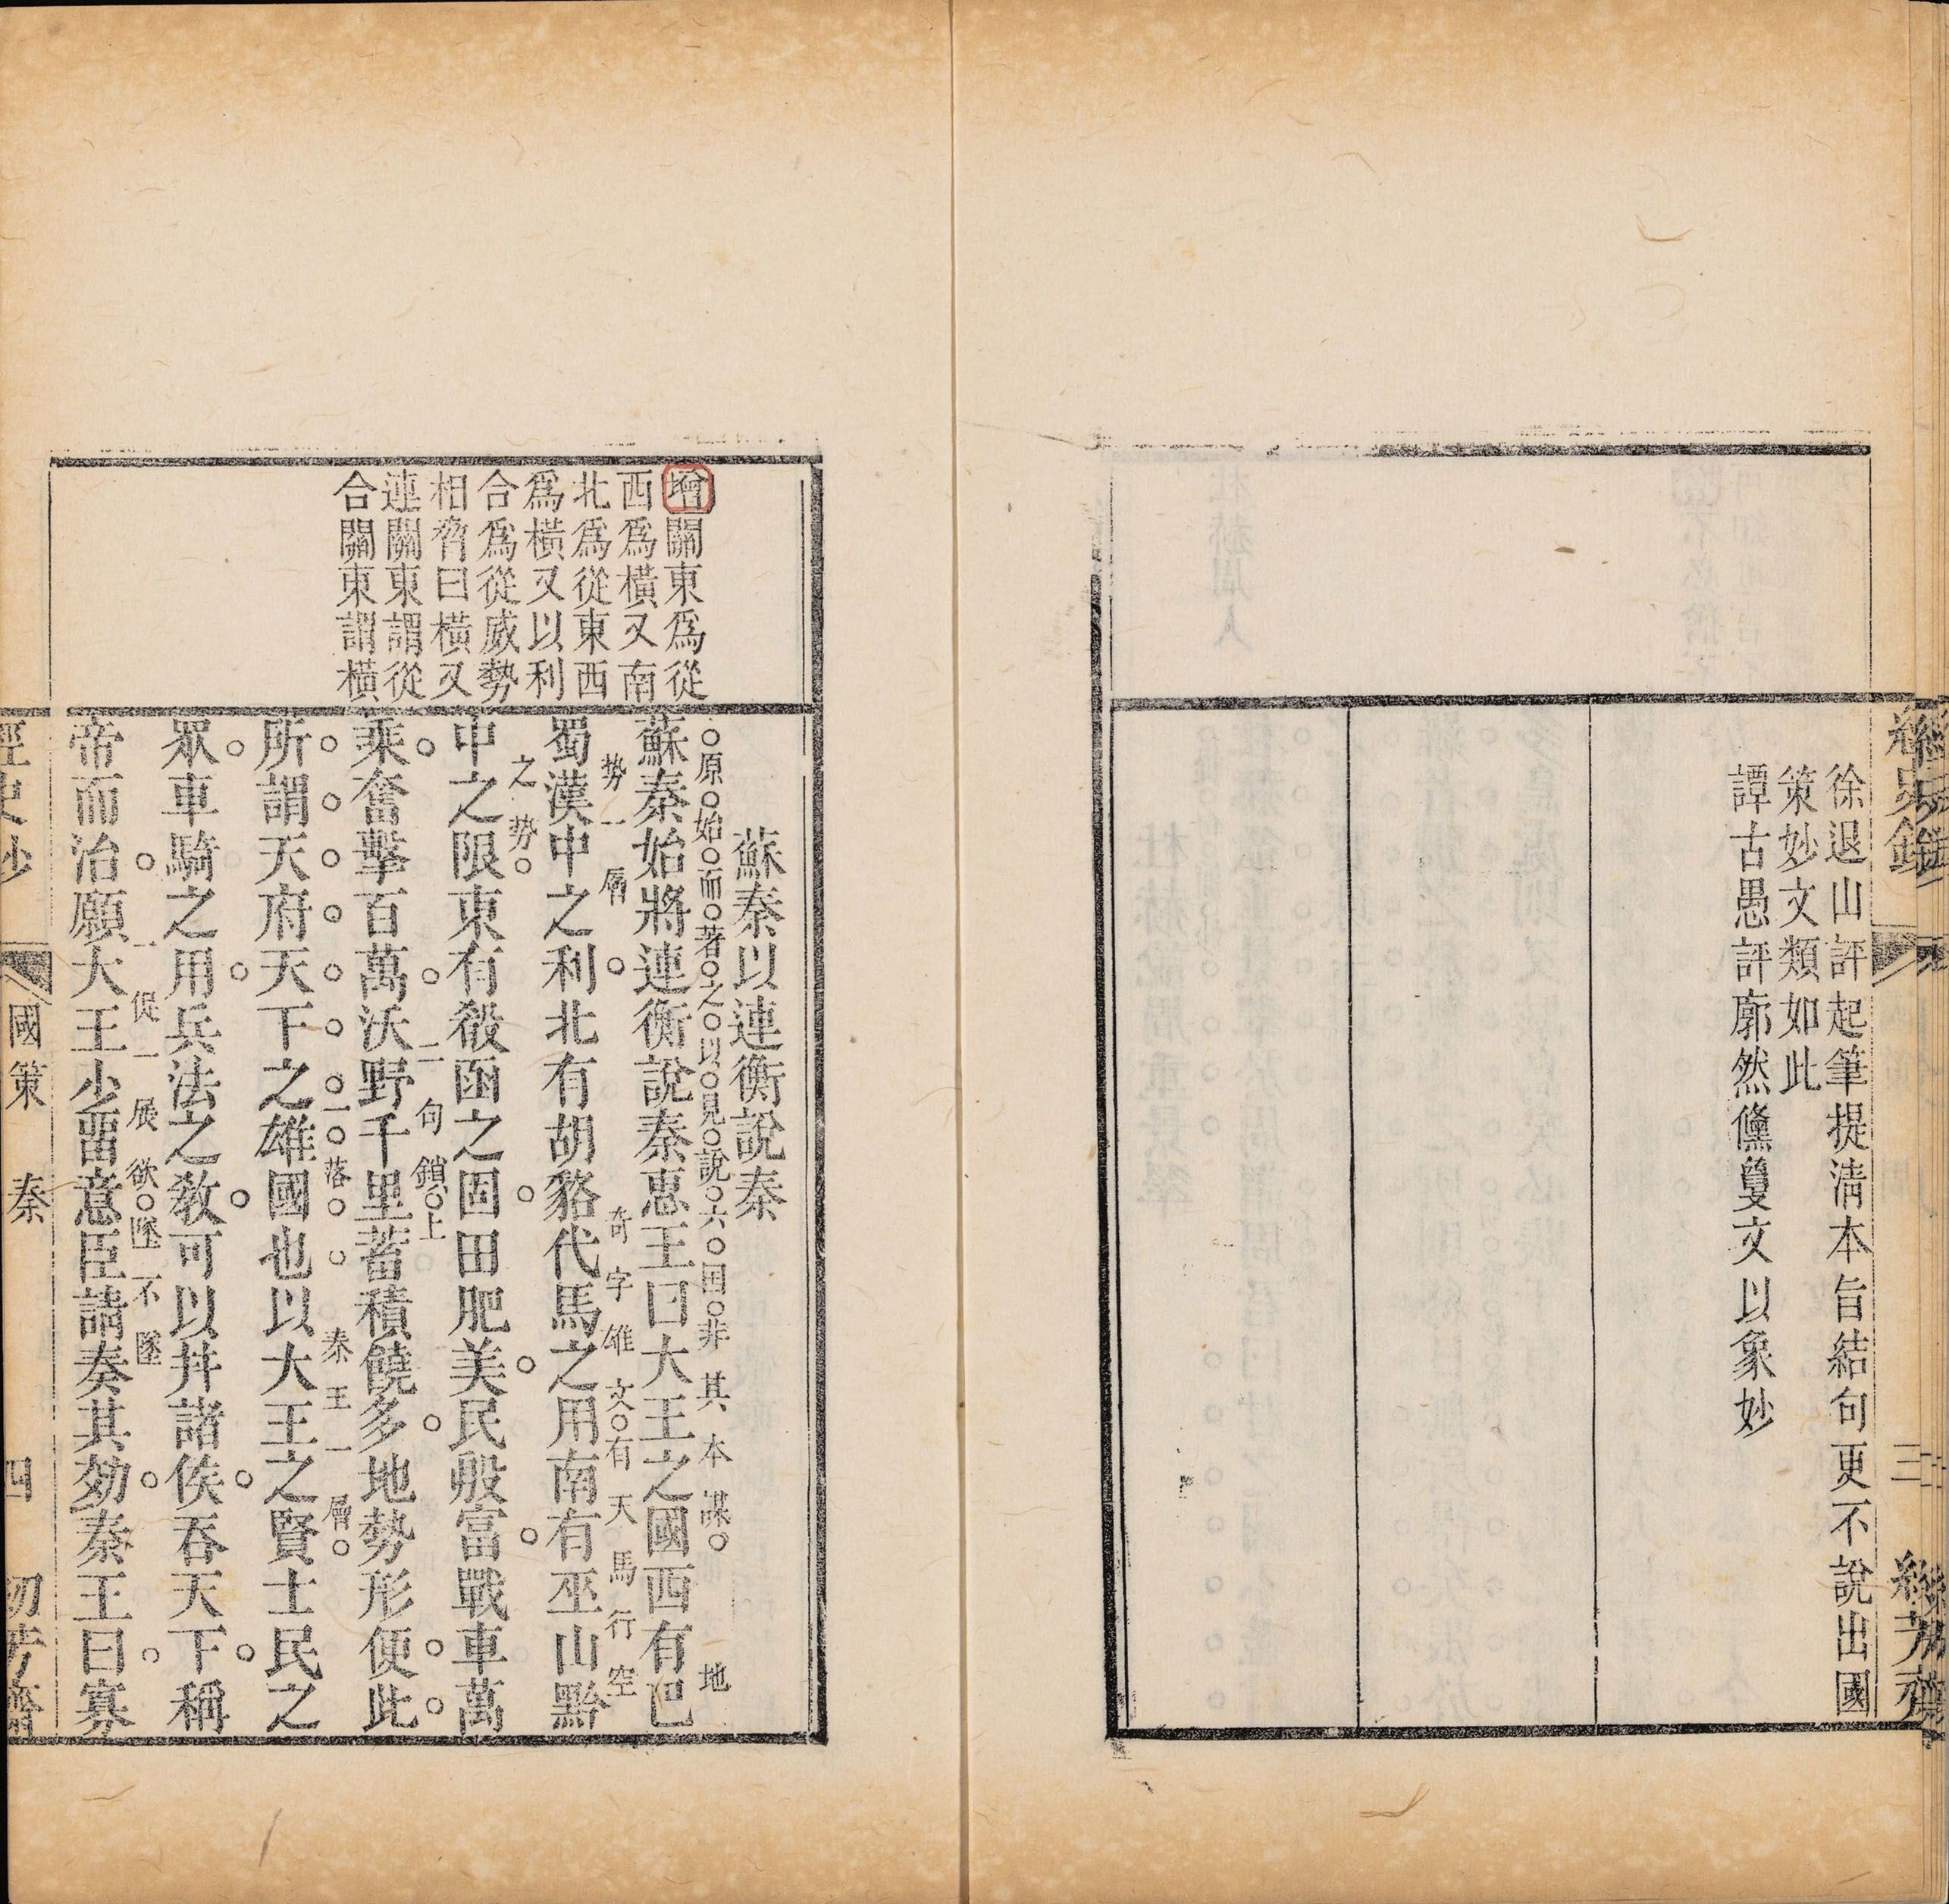 徐退山評起筆提淸本旨結句更不說出國
策妙文類如此
譚古愚評廓然儵夐文以象妙
三
增關東爲從
西爲橫又南
北爲從東西
爲橫又以利
合爲從威勢
相脅曰橫又
連關東謂從
合關東謂橫
蘇秦以連衡說秦
原始而著之以見說六国非其本謀地
蘇秦始將連衡說秦惠王曰大王之國西有巴
勢一層奇字雄文有天馬行空
蜀漢中之利北有胡貉代馬之用南有巫山黔
之勢
中之限東有殽函之固田肥美民殷富戰車萬
二句鎖上
乘奮擊百萬沃野千里蓄積饒多地勢形便此
一落秦王一層
所謂天府天下之雄國也以大王之賢士民之
眾車騎之用兵法之教可以幷諸侯吞天下稱
一促一展欲墜不墜
帝而治願大王少畱意臣請奏其効秦王曰寡
經史鈔
國策 秦
四